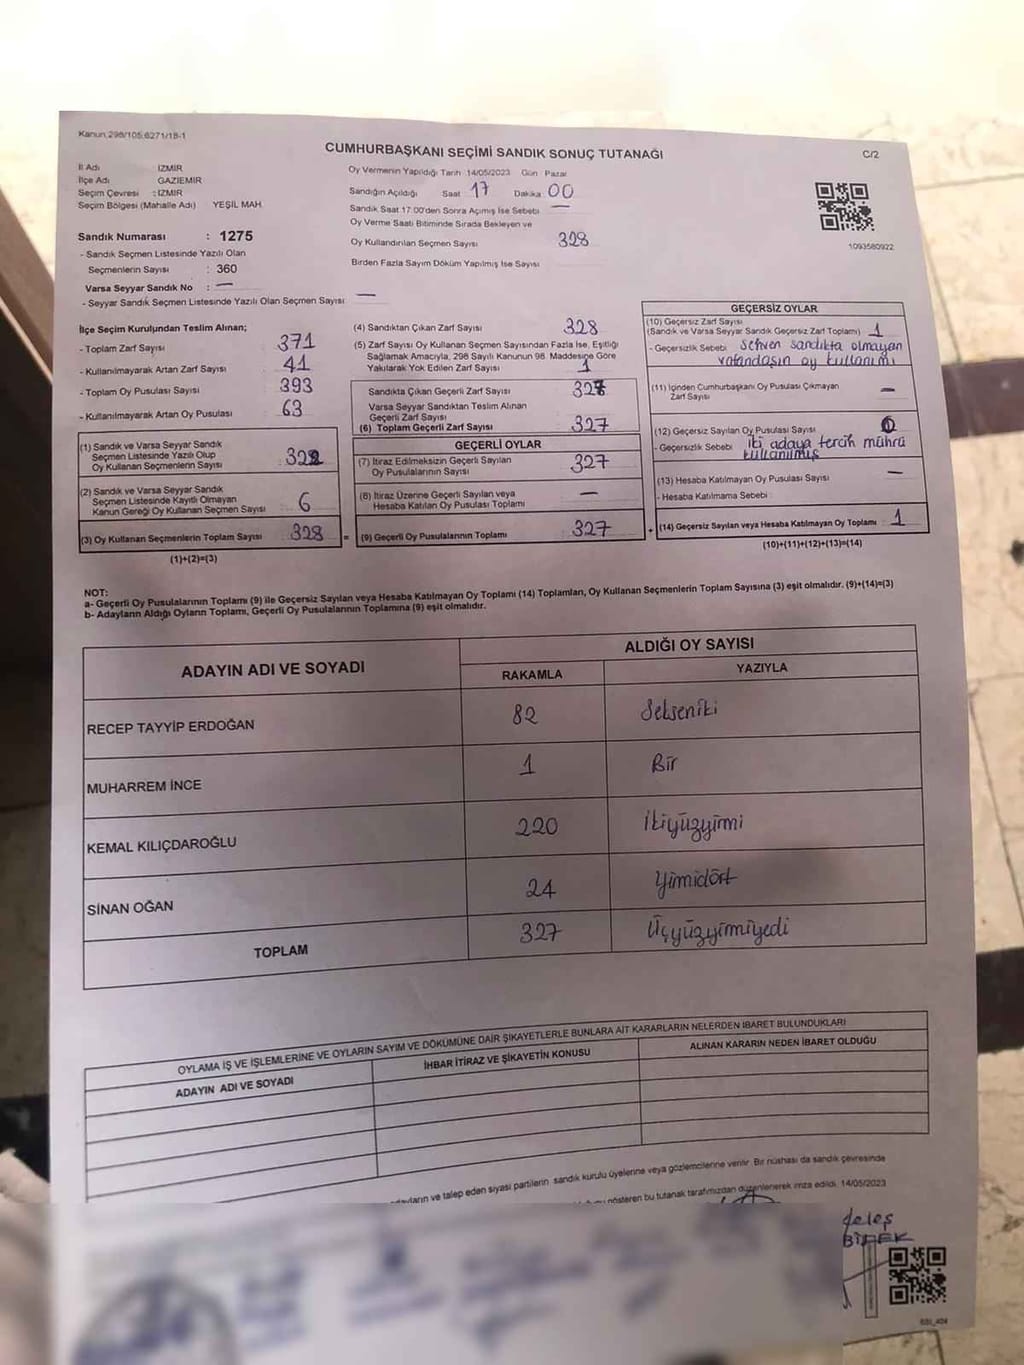 Kanun.298/105.6271/18-1
CUMHURBAŞKANI SEÇİMİ SANDIK SONUÇ TUTANAĞI
C/2
İl Adı İZMİR
İlçe Adı GAZİEMİR
Seçim Çevresi : İZMİR
Seçim Bölgesi (Mahalle Adı) YEŞİL MAH.
Oy Vermenin Yapıldığı Tarih 14/05/2023 Gün Pazar
Sandığın Açıldığı Saat 17 Dakika 00
Sandık Saat 17.00'den Sonra Açımış İse Sebebi —
Oy Verme Saati Bitiminde Sırada Bekleyen ve
Oy Kullandırılan Seçmen Sayısı 328
Birden Fazla Sayım Döküm Yapılmış İse Sayısı
1093580922
Sandık Numarası : 1275
- Sandık Seçmen Listesinde Yazılı Olan
Seçmenlerin Sayısı : 360
Varsa Seyyar Sandık No : —
- Seyyar Sandık Seçmen Listesinde Yazılı Olan Seçmen Sayısı —
İlçe Seçim Kurulundan Teslim Alınan;
- Toplam Zarf Sayısı 371
- Kullanılmayarak Artan Zarf Sayısı 41
- Toplam Oy Pusulası Sayısı 393
- Kullanılmayarak Artan Oy Pusulası 63
(1) Sandık ve Varsa Seyyar Sandık
Seçmen Listesinde Yazılı Olup
Oy Kullanan Seçmenlerin Sayısı
(2) Sandık ve Varsa Seyyar Sandık
Seçmen Listesinde Kayıtlı Olmayan
Kanun Gereği Oy Kullanan Seçmen Sayısı 6
(3) Oy Kullanan Seçmenlerin Toplam Sayısı 328
(1)+(2)=(3)
(4) Sandıktan Çıkan Zarf Sayısı 328
(5) Zarf Sayısı Oy Kullanan Seçmen Sayısından Fazla İse, Eşitliği
Sağlamak Amacıyla, 298 Sayılı Kanunun 98. Maddesine Göre
Yakılarak Yok Edilen Zarf Sayısı 1
Sandıkta Çıkan Geçerli Zarf Sayısı 327
Varsa Seyyar Sandıktan Teslim Alınan
Geçerli Zarf Sayısı
(6) Toplam Geçerli Zarf Sayısı 327
GEÇERLİ OYLAR
(7) İtiraz Edilmeksizin Geçerli Sayılan
Oy Pusulalarının Sayısı 327
(8) İtiraz Üzerine Geçerli Sayılan veya
Hesaba Katılan Oy Pusulası Toplamı —
= (9) Geçerli Oy Pusulalarının Toplamı 327
GEÇERSİZ OYLAR
(10) Geçersiz Zarf Sayısı
(Sandık ve Varsa Seyyar Sandık Geçersiz Zarf Toplamı) 1
- Geçersizlik Sebebi sehven sandıkta olmayan
vatandaşın oy kullanımı
(11) İçinden Cumhurbaşkanı Oy Pusulası Çıkmayan
Zarf Sayısı —
(12) Geçersiz Sayılan Oy Pusulası Sayısı 0
- Geçersizlik Sebebi iki adaya tercih mührü
kullanılmış
(13) Hesaba Katılmayan Oy Pusulası Sayısı —
- Hesaba Katılmama Sebebi
+ (14) Geçersiz Sayılan veya Hesaba Katılmayan Oy Toplamı 1
(10)+(11)+(12)+(13)=(14)
NOT:
a- Geçerli Oy Pusulalarının Toplamı (9) ile Geçersiz Sayılan veya Hesaba Katılmayan Oy Toplamı (14) Toplamları, Oy Kullanan Seçmenlerin Toplam Sayısına (3) eşit olmalıdır. (9)+(14)=(3)
b- Adayların Aldığı Oyların Toplamı, Geçerli Oy Pusulalarının Toplamına (9) eşit olmalıdır.
ADAYIN ADI VE SOYADI ALDIĞI OY SAYISI
RAKAMLA YAZIYLA
RECEP TAYYİP ERDOĞAN 82 Sekseniki
MUHARREM İNCE 1 Bir
KEMAL KILIÇDAROĞLU 220 İkiyüzyirmi
SİNAN OĞAN 24 Yirmidört
TOPLAM 327 Üçyüzyirmiyedi
OYLAMA İŞ VE İŞLEMLERİNE VE OYLARIN SAYIM VE DÖKÜMÜNE DAİR ŞİKAYETLERLE BUNLARA AİT KARARLARIN NELERDEN İBARET BULUNDUKLARI
ADAYIN ADI VE SOYADI İHBAR İTİRAZ VE ŞİKAYETİN KONUSU ALINAN KARARIN NEDEN İBARET OLDUĞU
adayların ve talep eden siyasi partilerin sandık kurulu üyelerine veya gözlemcilerine verilir. Bir nüshası da sandık çevresinde
gösteren bu tutanak tarafımızdan düzenlenerek imza edildi. 14/05/2023